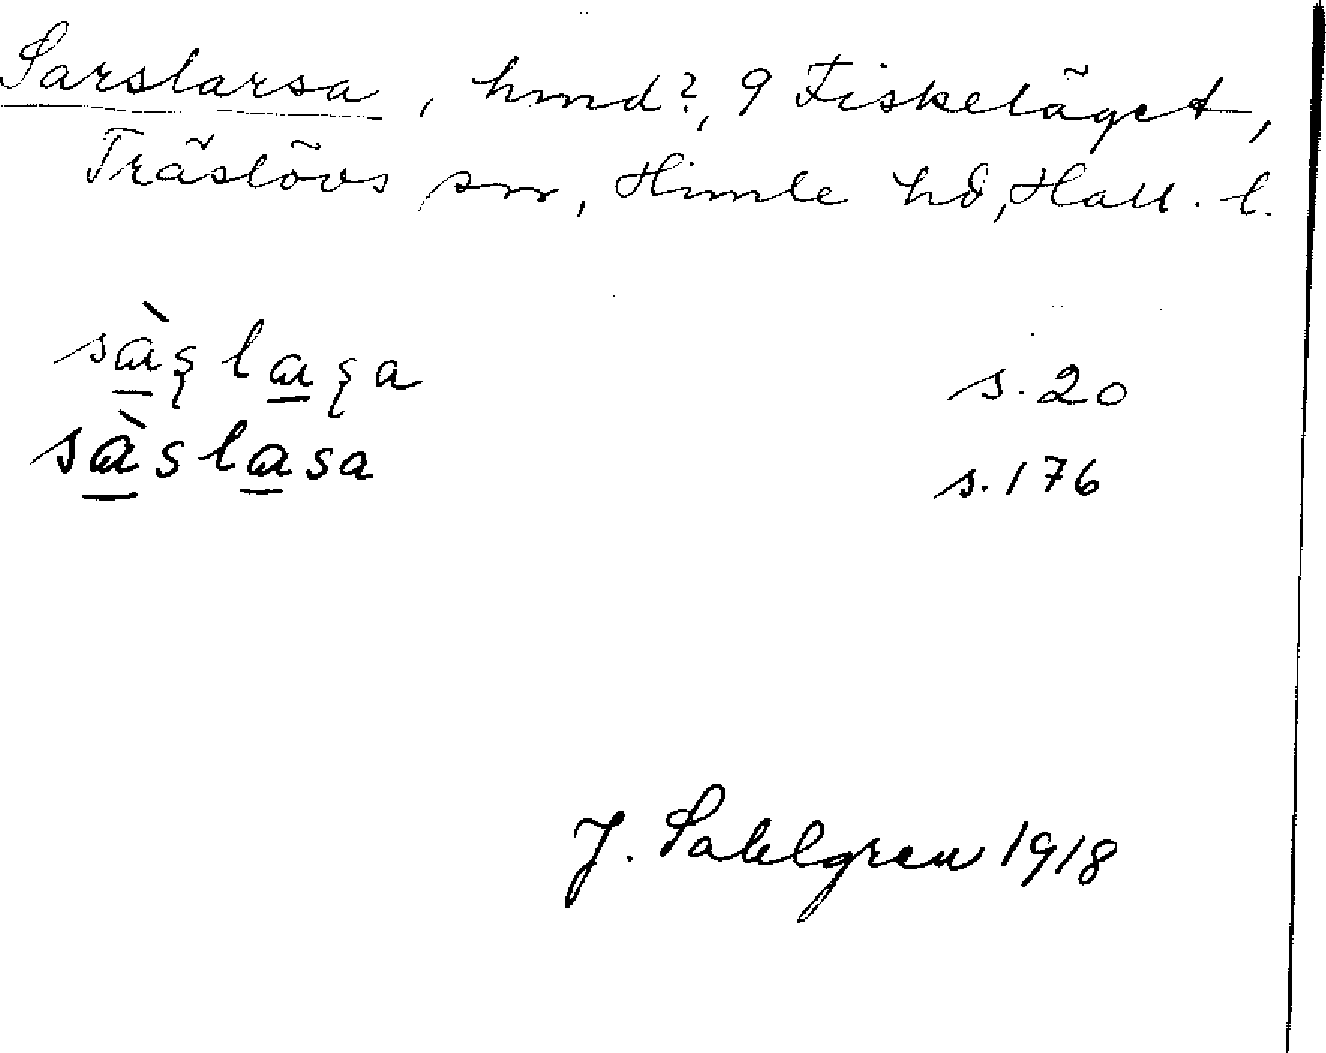 Sarslarsa, hmd?, 9 Fiskeläget,
Träslövs sn, Himle hd, Hall. l.
sɑ̠̀ʂlɑ̠ʂa s. 20
sɑ̠̀slɑ̠sa s. 176
J. Sahlgren 1918